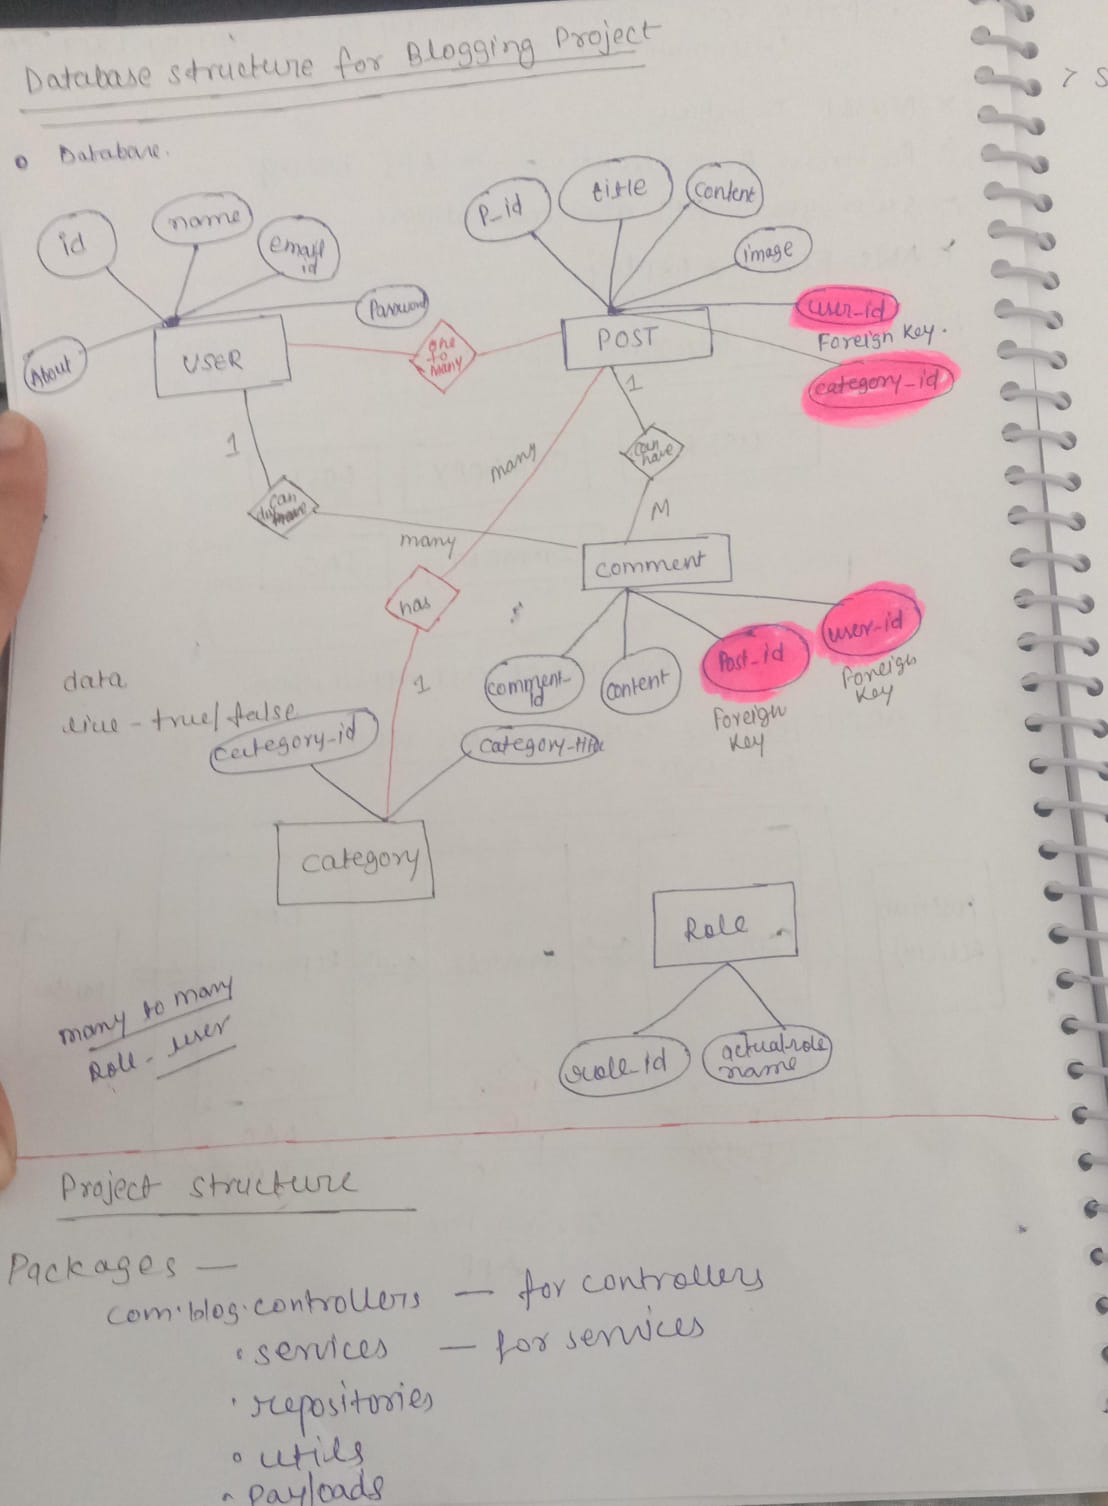 Database structure for Blogging Project
Database.
id
name
email
id
Password
About
USER
one
to
many
P_id
title
content
image
user_id
Foreign Key.
category_id
POST
1
can
have
M
1
can
many
many
comment
has
1
comment_
id
content
Post_id
Foreign
Key
user_id
Foreign
Key
data
live - true/false
category_id
category_title
category
Role
role_id
actual role
name
many to many
Role - user
Project structure
Packages —
com.blog.controllers — for controllers
. services — for services
. repositories
. utils
. payloads